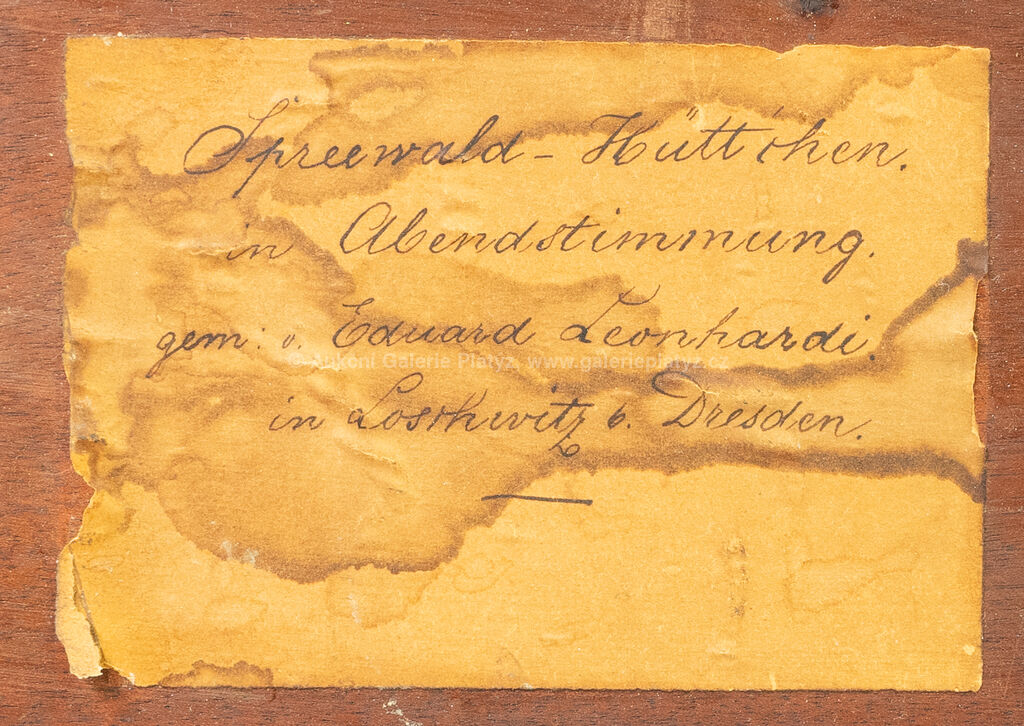 Spreewald - Hüttchen.
in Abendstimmung.
gem: v. Eduard Leonhardi.
© Aukční Galerie Platýz, www.galerieplatyz.cz
in Loschwitz b. Dresden.